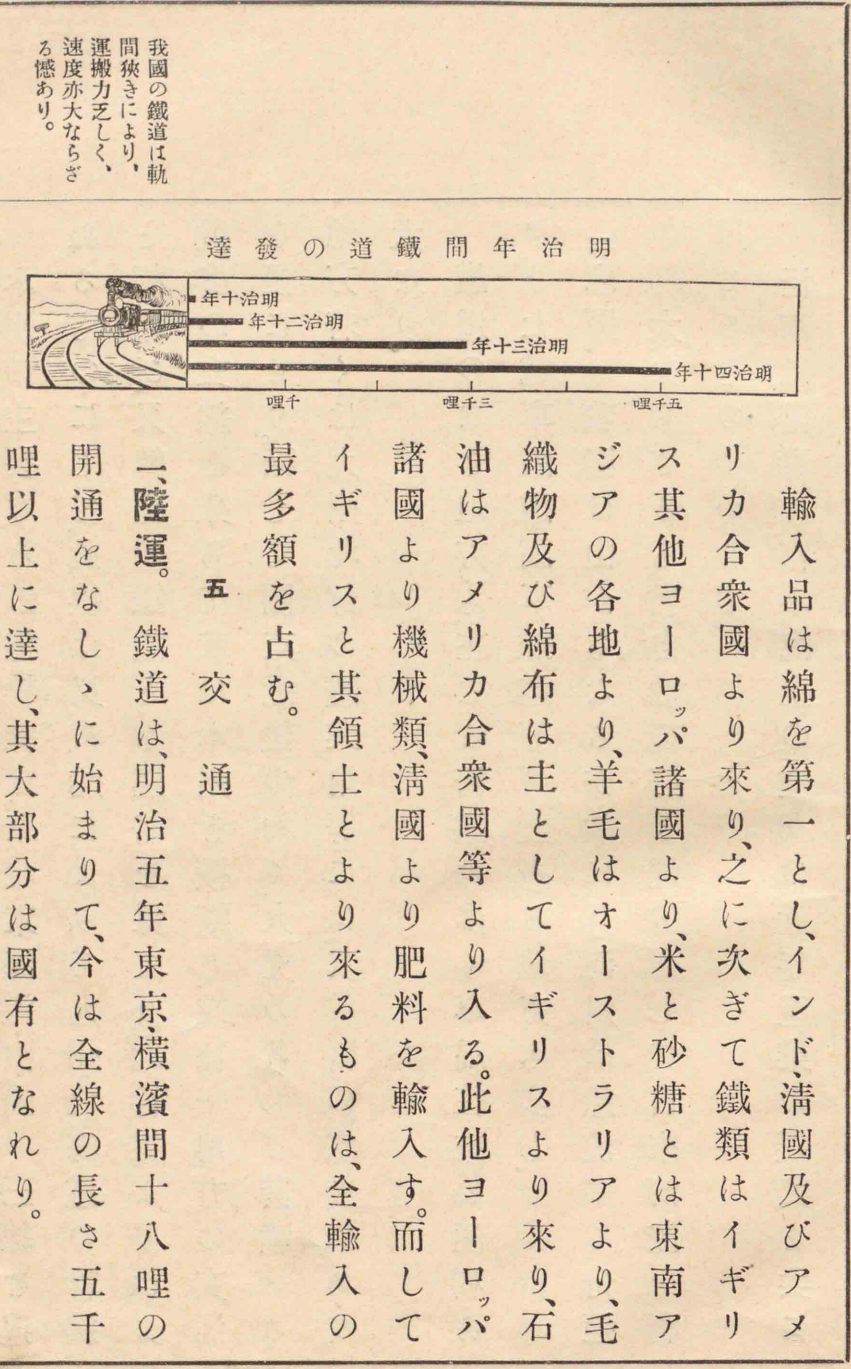 我國の鐵道は軌
間狹きにより、
運搬力乏しく、
速度亦大ならざ
る憾あり。
明治年間鐵道の發達
明治十年
明治二十年
明治三十年
明治四十年
千哩
三千哩
五千哩
輸入品は綿を第一とし、インド、淸國及びアメ
リカ合衆國より來り、之に次ぎて鐵類はイギリ
ス其他ヨーロッパ諸國より、米と砂糖とは東南ア
ジアの各地より、羊毛はオーストラリアより、毛
織物及び綿布は主としてイギリスより來り、石
油はアメリカ合衆國等より入る。此他ヨーロッパ
諸國より機械類、淸國より肥料を輸入す。而して
イギリスと其領土とより來るものは、全輸入の
最多額を占む。
五 交通
一、陸運。 鐵道は、明治五年東京、橫濱間十八哩の
開通をなしゝに始まりて、今は全線の長さ五千
哩以上に達し、其大部分は國有となれり。